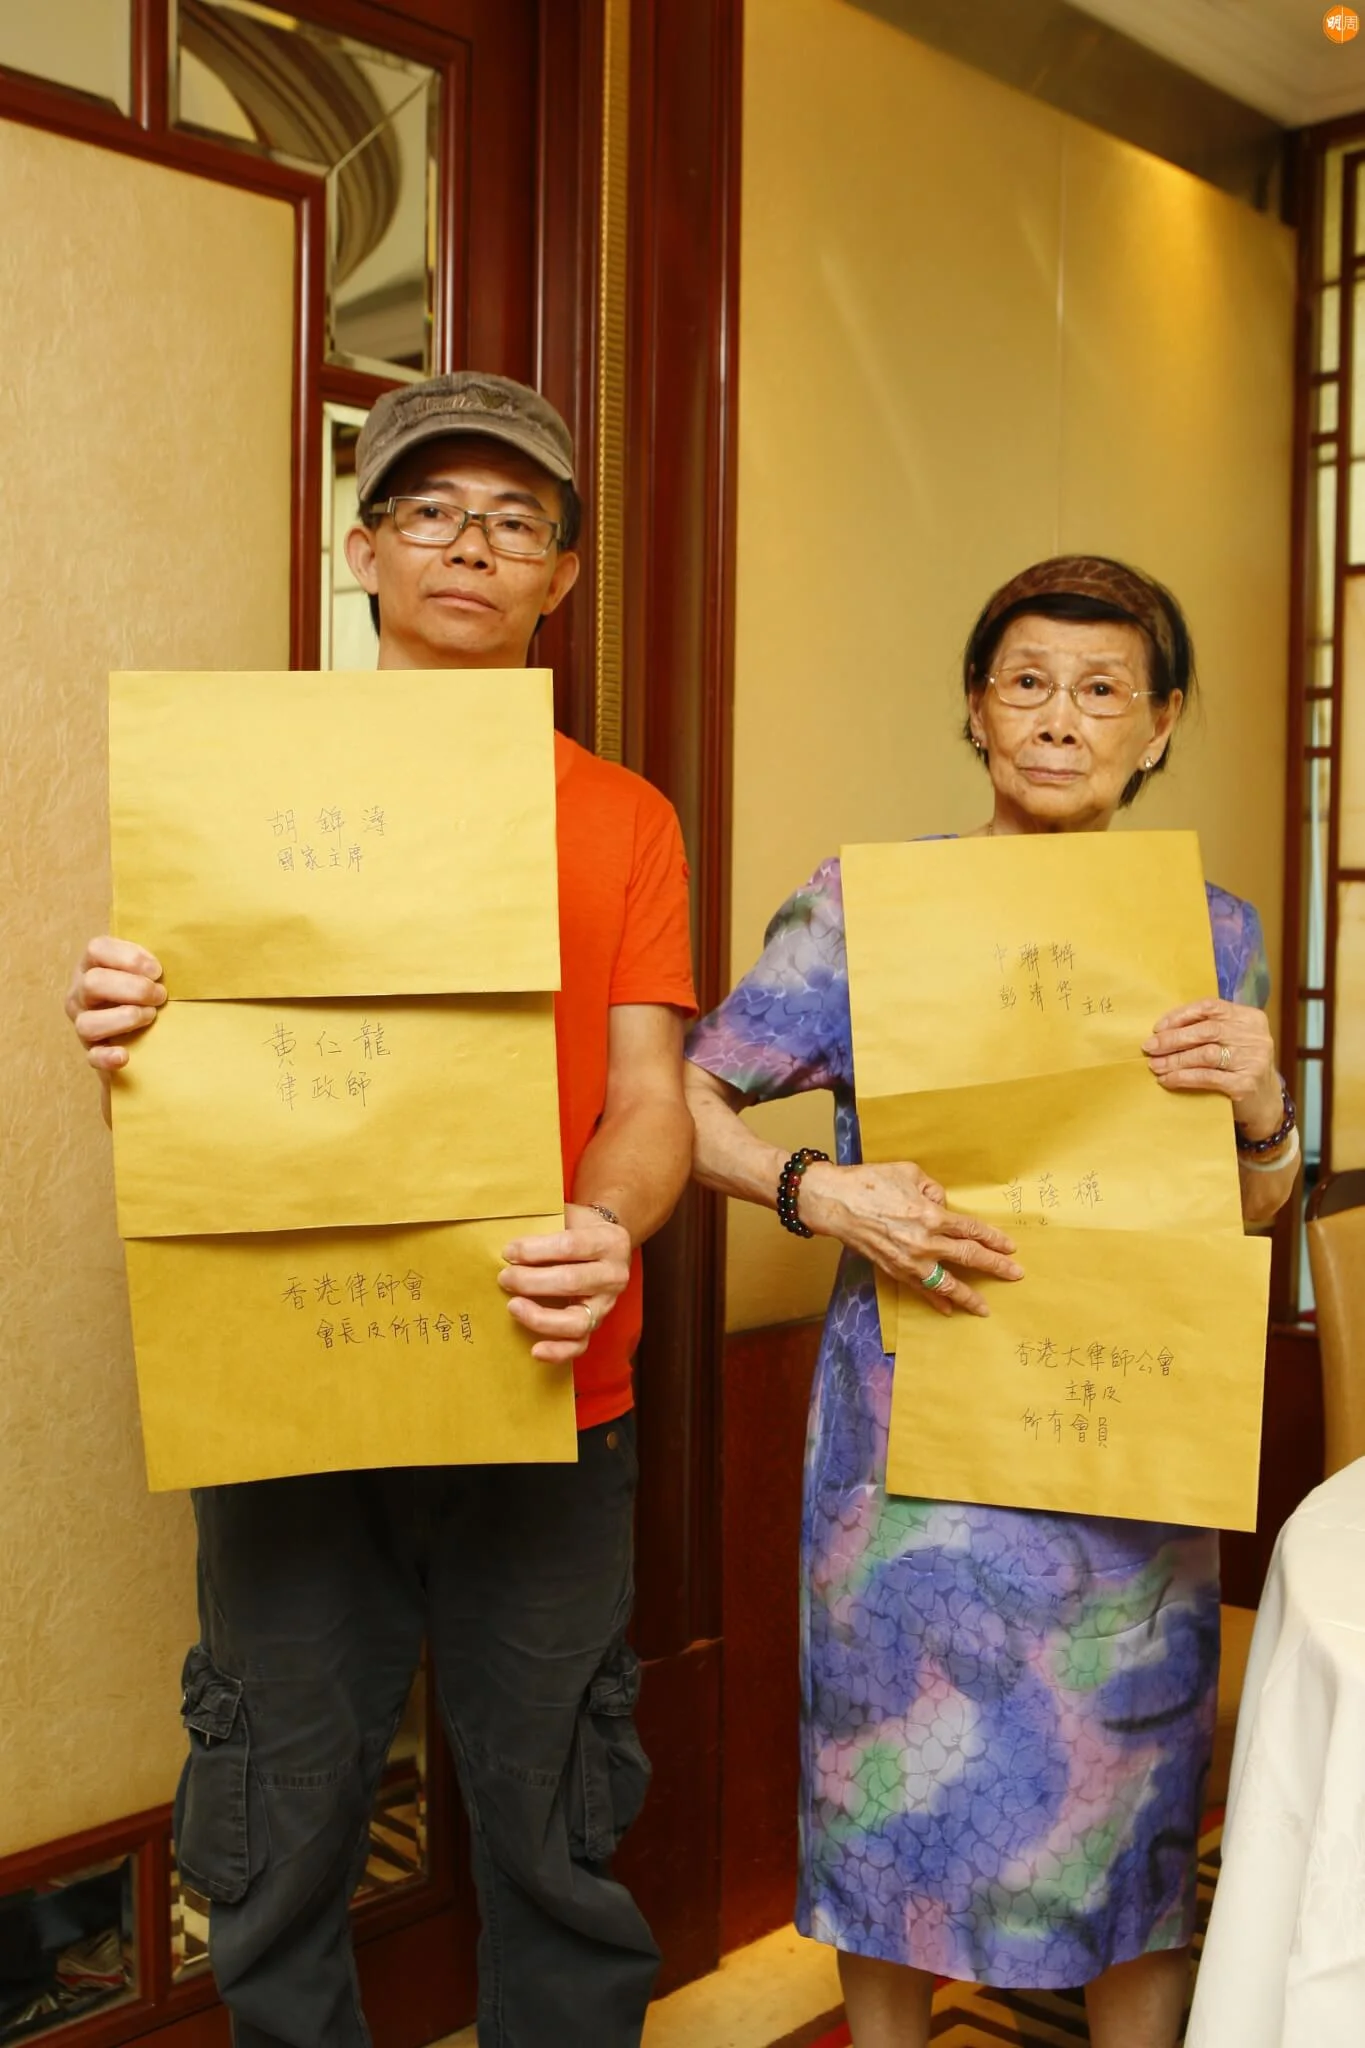 明周
胡錦濤
國家主席
黃仁龍
律政師
香港律師會
會長及所有會員
中聯辦
彭清华主任
曾蔭權
香港大律師公會
主席及
所有會員